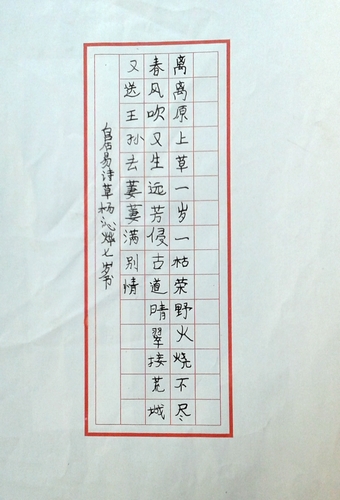 离离原上草一岁一枯荣野火烧不尽
春风吹又生远芳侵古道晴翠接荒城
又送王孙去萋萋满别情
白居易诗草杨沁烨七岁书